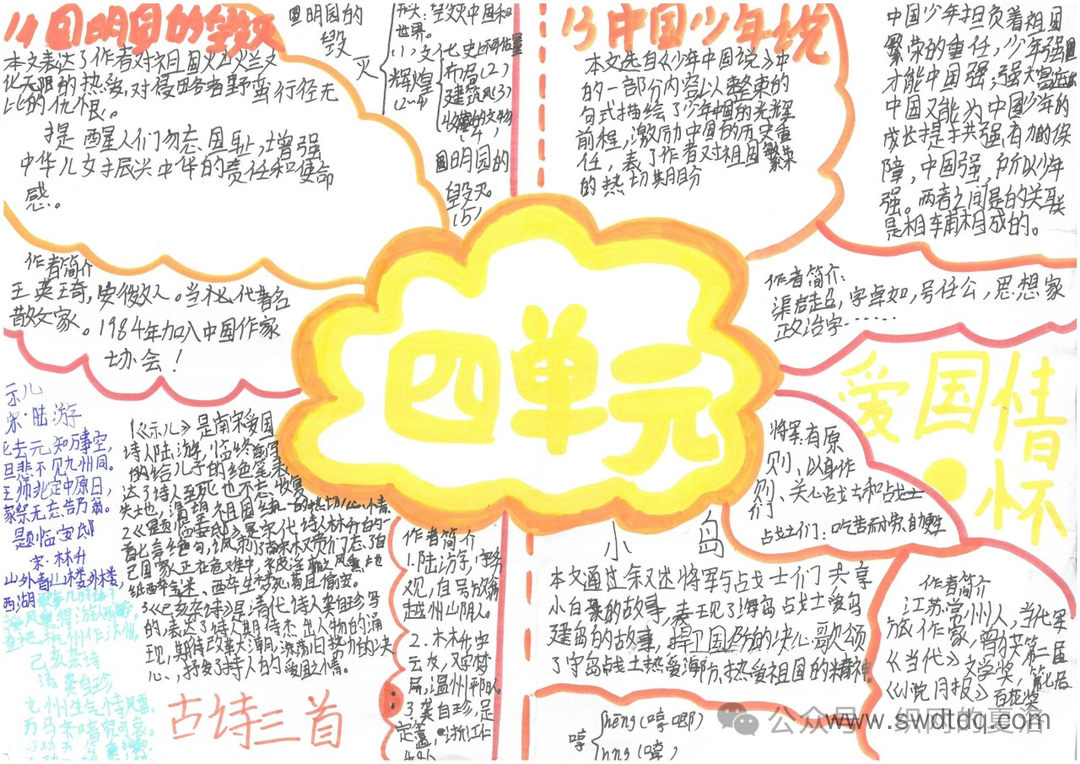 14圆明园的毁灭
本文表达了作者对祖国灿烂文
化无限的热爱,对侵略者野蛮行径无
比的仇恨。
提醒人们勿忘国耻,增强
中华儿女振兴中华的责任和使命
感。
圆明园的
毁
灭
开头:毁灭中国和
世界。
(1)文化史上不可估量
辉煌
布局(2)
建筑风(3)
收藏的文物
圆明园的
毁灭
(5)
13中国少年说
本文选自《少年中国说》中
的一部分内容,以整束的
句式描绘了少年中国的光辉
前程,激励中国的历史重
任,表了作者对祖国繁荣
的热切期盼
中国少年担负着祖国
繁荣的重任,少年强国
才能中国强,强大富
中国又能为中国少年的
成长提于共强有力的保
障,中国强,所以少年
强。两者之间是的关联
是相车甫相成的。
作者简介
王英琦,安徽人。当代著名
散文家。1984年加入中国作家
协会!
作者简介:
梁启超,字卓如,号任公,思想家
政治字……
四单元
爱国情
怀
示儿
宋·陆游
死去元知万事空,
但悲不见九州同。
王师北定中原日,
家祭无忘告乃翁。
题临安邸
宋·林升
山外青山楼外楼,
西湖
己亥杂诗
清 龚自珍
九州生气恃风雷,
万马齐喑究可哀。
1《示儿》是南宋爱国
诗人陆游,临终前写
的给儿子的绝笔表
达了诗人至死也不忘收复
失土也,渴望祖国统一的热切心情。
2《题临安邸》是宋代诗人林升的一
首七言绝句,讽刺了南宋权贵们忘了自
己国家正在危难中,
纸西卒金迷、西卒生梦死苟且偷安。
3《己亥杂诗》是清代诗人龚自珍写
的,表达了诗人期待杰出人物的涌
现,期待改革大潮,涤荡旧势力的决
心,抒发了诗人的爱国之情。
古诗三首
作者简介
1.陆游,字务
观,自号放翁
越州山阴人。
2.林升字
云友,又字
局,温州平阳人。
3龚自珍,是
定盦,浙江仁
将军:有原
则、以身作
则、关心战士和战士
们
战士们:吃苦而耐劳、自觉
小 岛
本文通过余又述将军与战士们共享
小白菜的故事,表现了海岛战士爱岛
建岛的故事,捍卫国防的决心,歌颂
了守岛战士热爱海防,热爱祖国的精神。
哼
hēng(哼唧)
hng(哼)
作者简介
江苏常州人,当代军
旅作家,曾获第二届
《当代》文学奖,第七届
《小说月报》百花奖
公众号
www.swdtdq.com